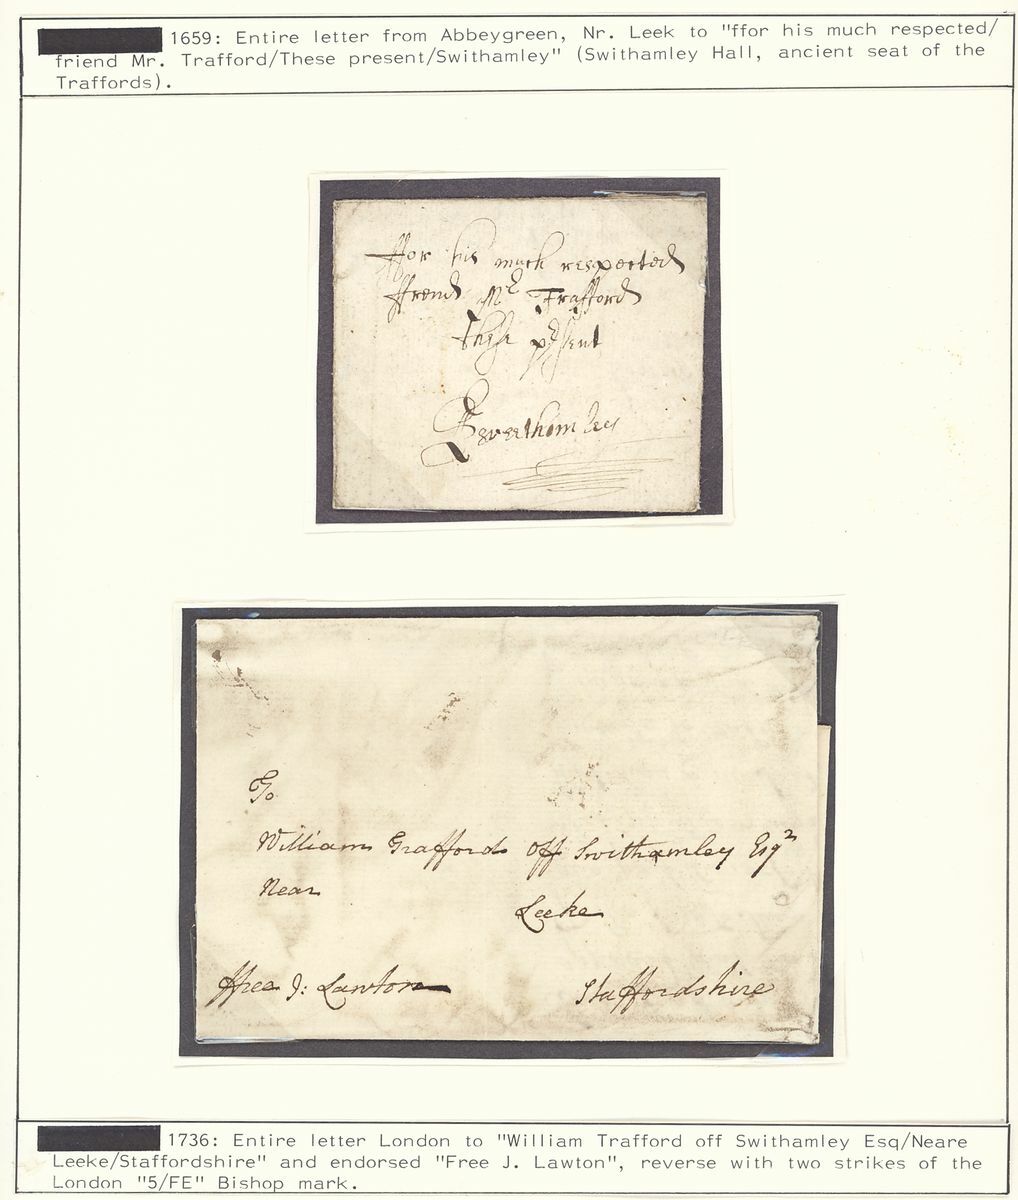 1659: Entire letter from Abbeygreen, Nr. Leek to "ffor his much respected/
friend Mr. Trafford/These present/Swithamley" (Swithamley Hall, ancient seat of the
Traffords).
ffor his much respected
ffrend Mr Trafford
These psent
To
William Trafford Off Swithamley Esqr
Near
Leeke
ffree J: Lawton
Staffordshire
1736: Entire letter London to "William Trafford off Swithamley Esq/Neare
Leeke/Staffordshire" and endorsed "Free J. Lawton", reverse with two strikes of the
London "5/FE" Bishop mark.